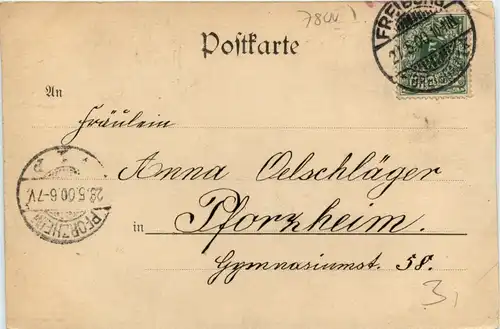 78W
FREIBURG
Postkarte
An
Fräulein
Anna Oelschläger
28.5.00.6-7V.
PFORZHEIM
in Pforzheim.
Gymnasiumst. 58.
3,